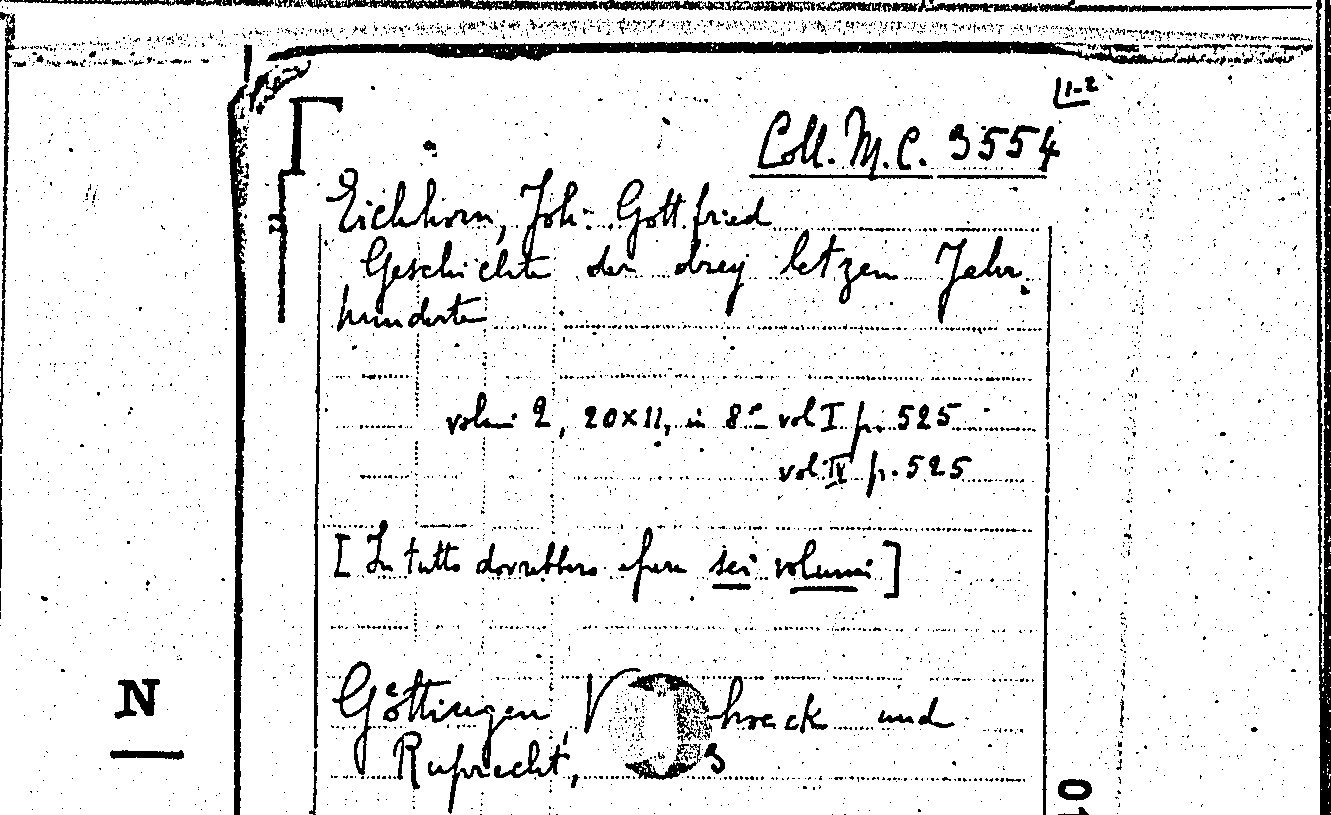 1-2
Coll. M. C. 3554
Eichhorn, Joh. Gottfried
Geschichte der drey letzen Jahr-
hunderten
volumi 2, 20x11, in 8° vol I p. 525
vol. IV p. 525
[In tutto dovrebbero essere sei volumi]
Göttingen, V hoeck und
Ruprecht, 3
N
01